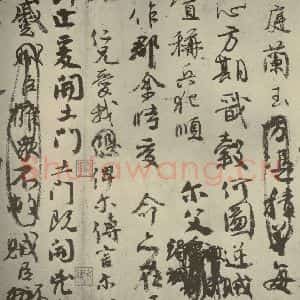 庭蘭玉方憑積善每
心方期戩穀何圖逆賊
稱兵犯順 尔父
作郡余時受命亦在
仁兄愛我俾尔傳言尔
止爰開土門土門既開兇
蹙賊臣擁衆不救賊臣
Shufawang.cn